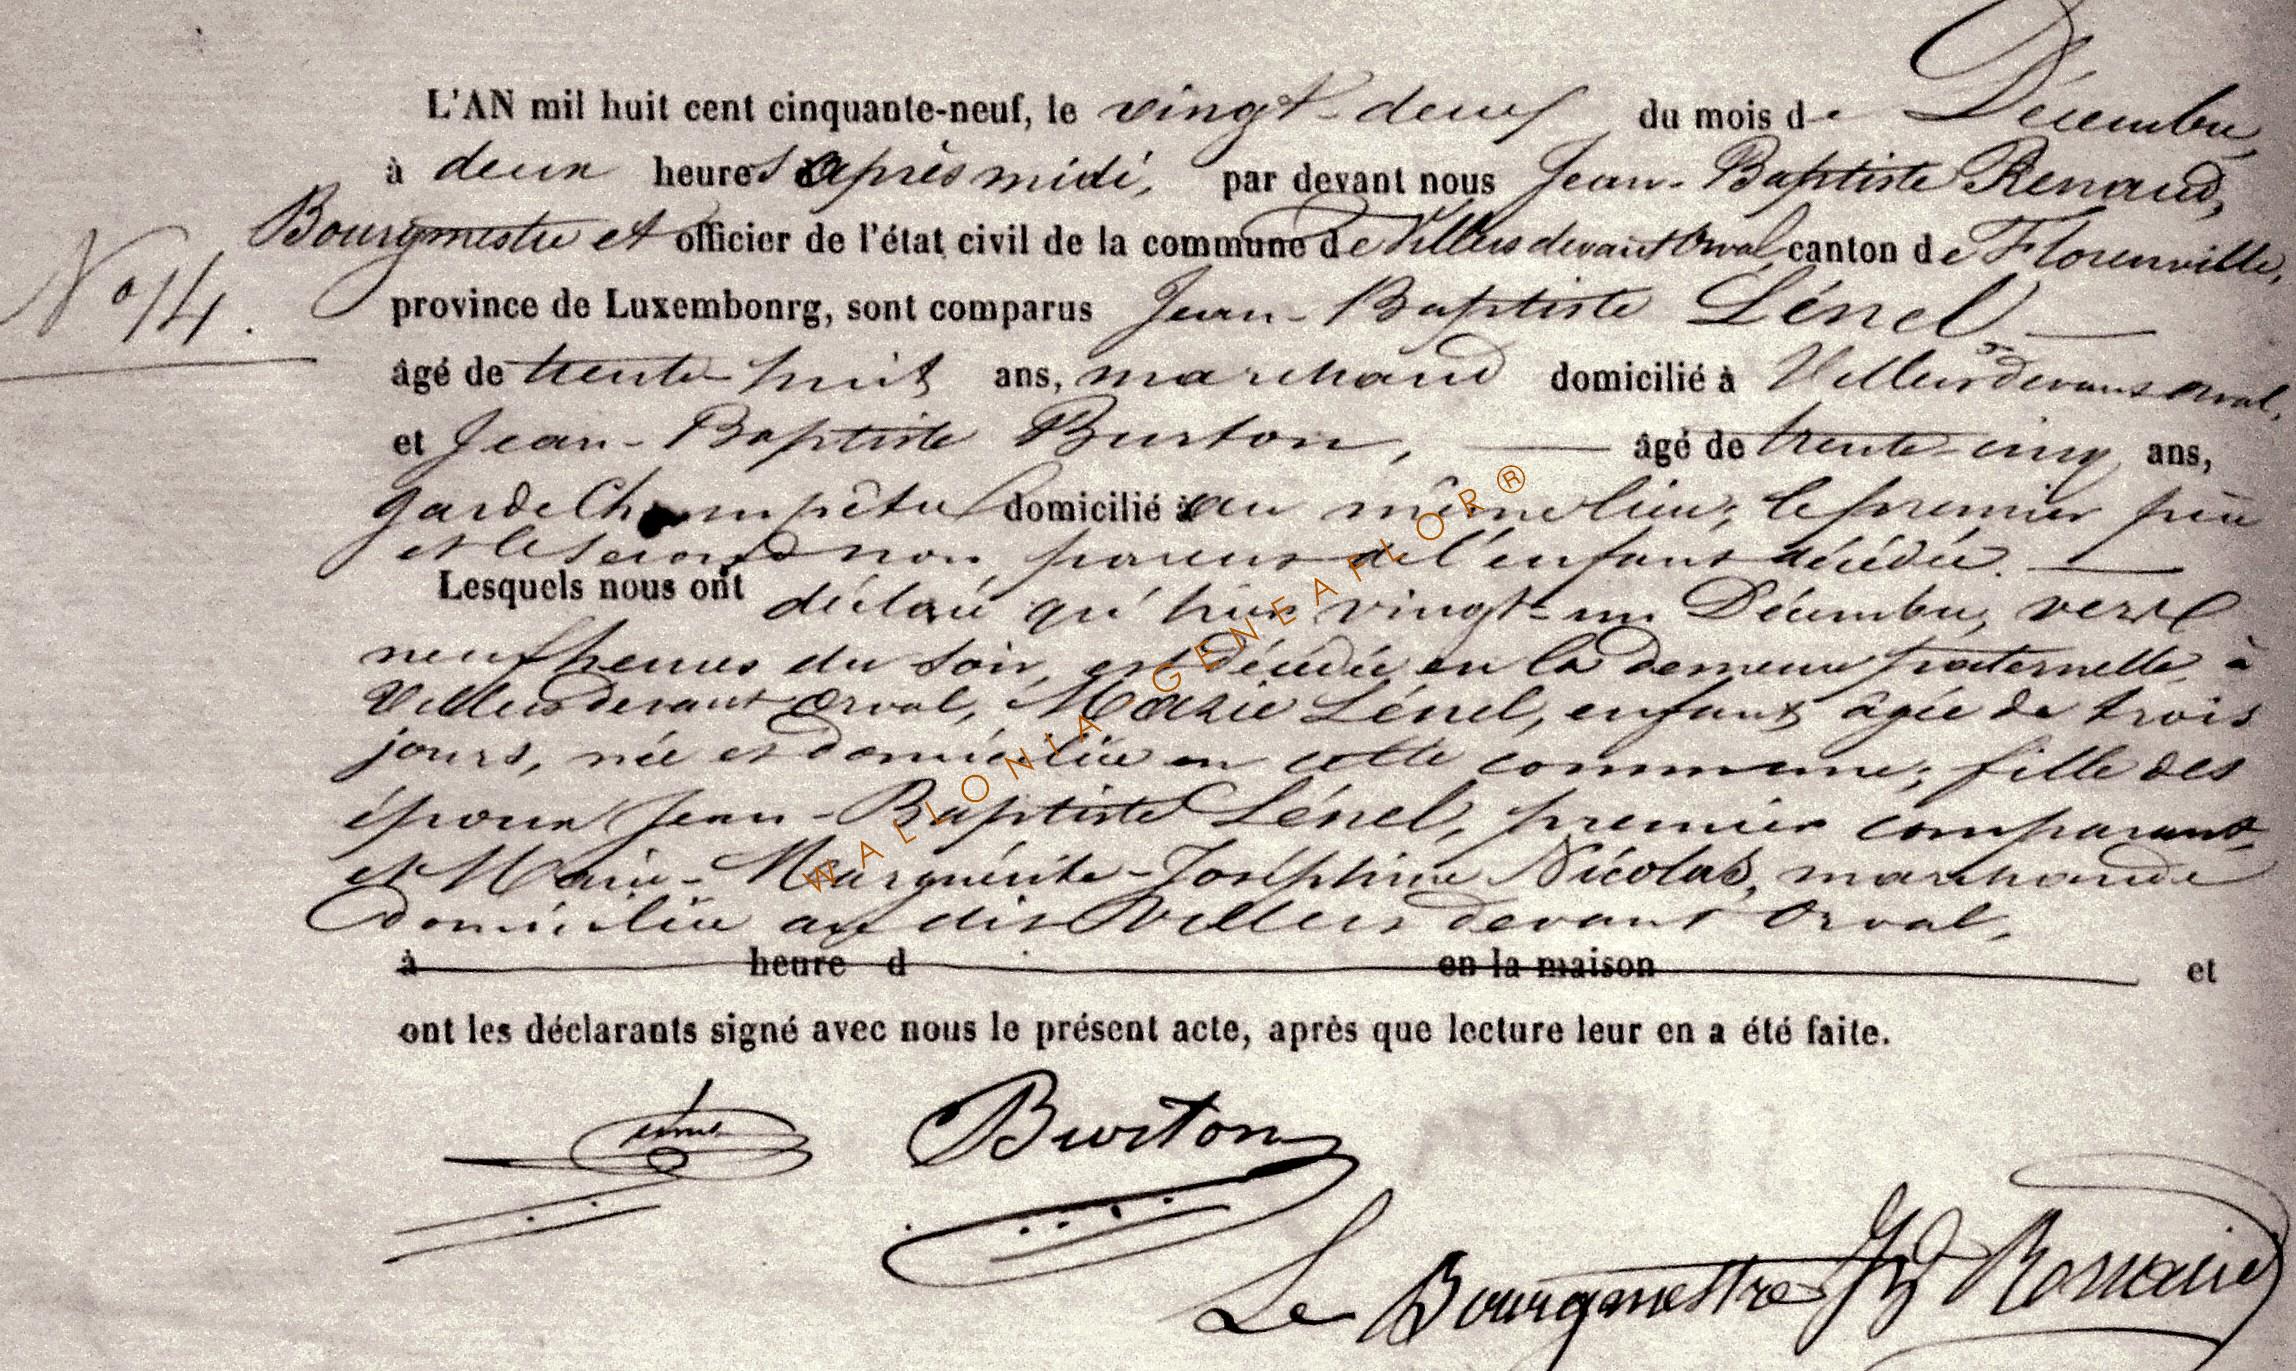 L'AN mil huit cent cinquante-neuf, le vingt-deux du mois de Décembre,
à deux heures après midi, par devant nous Jean-Baptiste Renauld,
Bourgmestre et officier de l'état civil de la commune de Villers devant Orval canton de Florenville,
N° 14.
province de Luxembonrg, sont comparus Jean-Baptiste Lénel
âgé de trente-huit ans, marchand domicilié à Villers devant Orval,
et Jean-Baptiste Burton, âgé de trente-cinq ans,
garde Champêtre domicilié au même lieu; le premier père
et le second non parens de l'enfant décédée.
Lesquels nous ont déclaré qu'hier vingt-un Décembre, vers
neuf heures du soir, est décédée en la demeure paternelle, à
Villers devant Orval, Marie Lénel, enfant âgée de trois
jours, née et domiciliée en cette commune; fille des
époux Jean-Baptiste Lénel, premier comparant,
et Marie-Marguérite-Joséphine Nicolas, marchande
domiciliée au dit Villers devant Orval,
à heure d en la maison et
ont les déclarants signé avec nous le présent acte, après que lecture leur en a été faite.
Burton
Le Bourgmestre
WALLONIA GENEAFLOR®